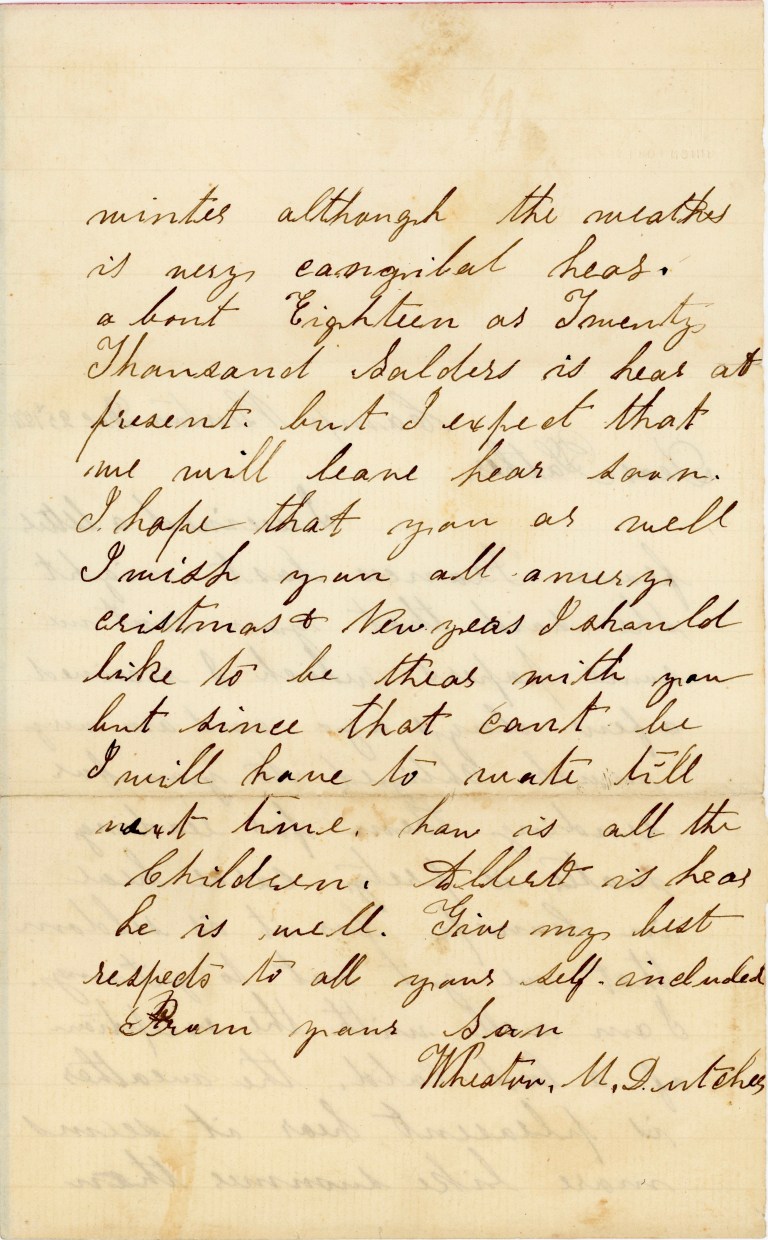 winter although the weather
is very cangibal hear.
about Eighteen or Twenty
Thousand Solders is hear at
present. but I expect that
we will leave hear soon.
I hope that you ar well
I wish you all a mery
cristmas & New years I should
like to be thear with you
but since that cant be
I will have to wate till
next time. how is all the
Children. Albert is hear
he is well. Give my best
respects to all your self. included
From your Son
Wheaton. M. Dutcher